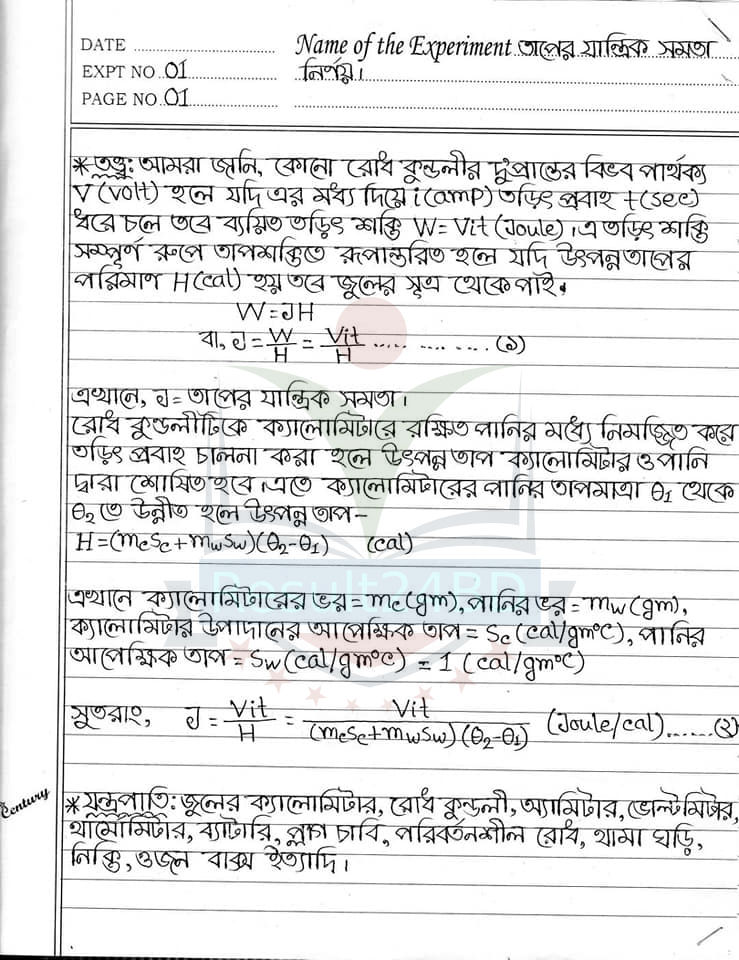 DATE ........ Name of the Experiment তাপের যান্ত্রিক সমতা
EXPT NO 01 নির্ণয়।
PAGE NO 01
*তত্ত্ব: আমরা জানি, কোনো রোধ কুন্ডলীর দু'প্রান্তের বিভব পার্থক্য
V (volt) হলে যদি এর মধ্য দিয়ে i (amp) তড়িৎ প্রবাহ t (sec)
ধরে চলে তবে ব্যয়িত তড়িৎ শক্তি W = Vit (Joule)। এ তড়িৎ শক্তি
সম্পূর্ণ রুপে তাপশক্তিতে রূপান্তরিত হলে যদি উৎপন্ন তাপের
পরিমাণ H (cal) হয় তবে জুলের সূত্র থেকে পাই,
W = JH
বা, J = W/H = Vit/H ..... .... ... . (১)
এখানে, J = তাপের যান্ত্রিক সমতা।
রোধ কুন্ডলীটিকে ক্যালোমিটারে রক্ষিত পানির মধ্যে নিমজ্জিত করে
তড়িৎ প্রবাহ চালনা করা হলে উৎপন্ন তাপ ক্যালোমিটার ও পানি
দ্বারা শোষিত হবে। এতে ক্যালোমিটারের পানির তাপমাত্রা θ₁ থেকে
θ₂ তে উন্নীত হলে উৎপন্ন তাপ-
H = (mcSc + mwSw) (θ₂-θ₁) (cal)
Result24BD
এখানে ক্যালোমিটারের ভর = mc (gm), পানির ভর = mw (gm),
ক্যালোমিটার উপাদানের আপেক্ষিক তাপ = Sc (cal/gm°C), পানির
আপেক্ষিক তাপ = Sw (cal/gm°C) = 1 (cal/gm°C)
সুতরাং, J = Vit/H = Vit/(mcSc+mwSw) (θ₂-θ₁) (Joule/cal) ...... (২)
Century
*যন্ত্রপাতি: জুলের ক্যালোমিটার, রোধ কুন্ডলী, অ্যামিটার, ভোল্টমিটার,
থার্মোমিটার, ব্যাটারি, প্লাগ চাবি, পরিবর্তনশীল রোধ, থামা ঘড়ি,
নিক্তি, ওজন বাক্স ইত্যাদি।